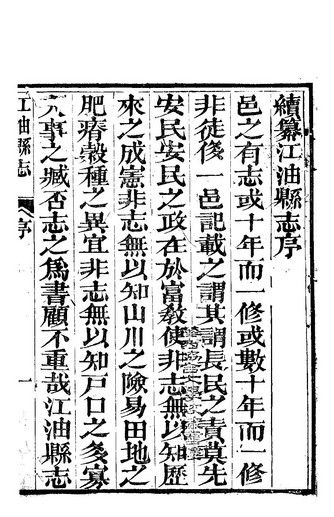 續纂江油縣志序
邑之有志或十年而一修或數十年而一修
非徒俻一邑記載之謂其謂長民之責莫先
安民安民之政在於富敎使非志無以知歷
來之成憲非志無以知山川之險易田地之
肥瘠穀種之異宜非志無以知戸口之多寡
人事之臧否志之爲書顧不重哉江油縣志
江油縣志
序
一